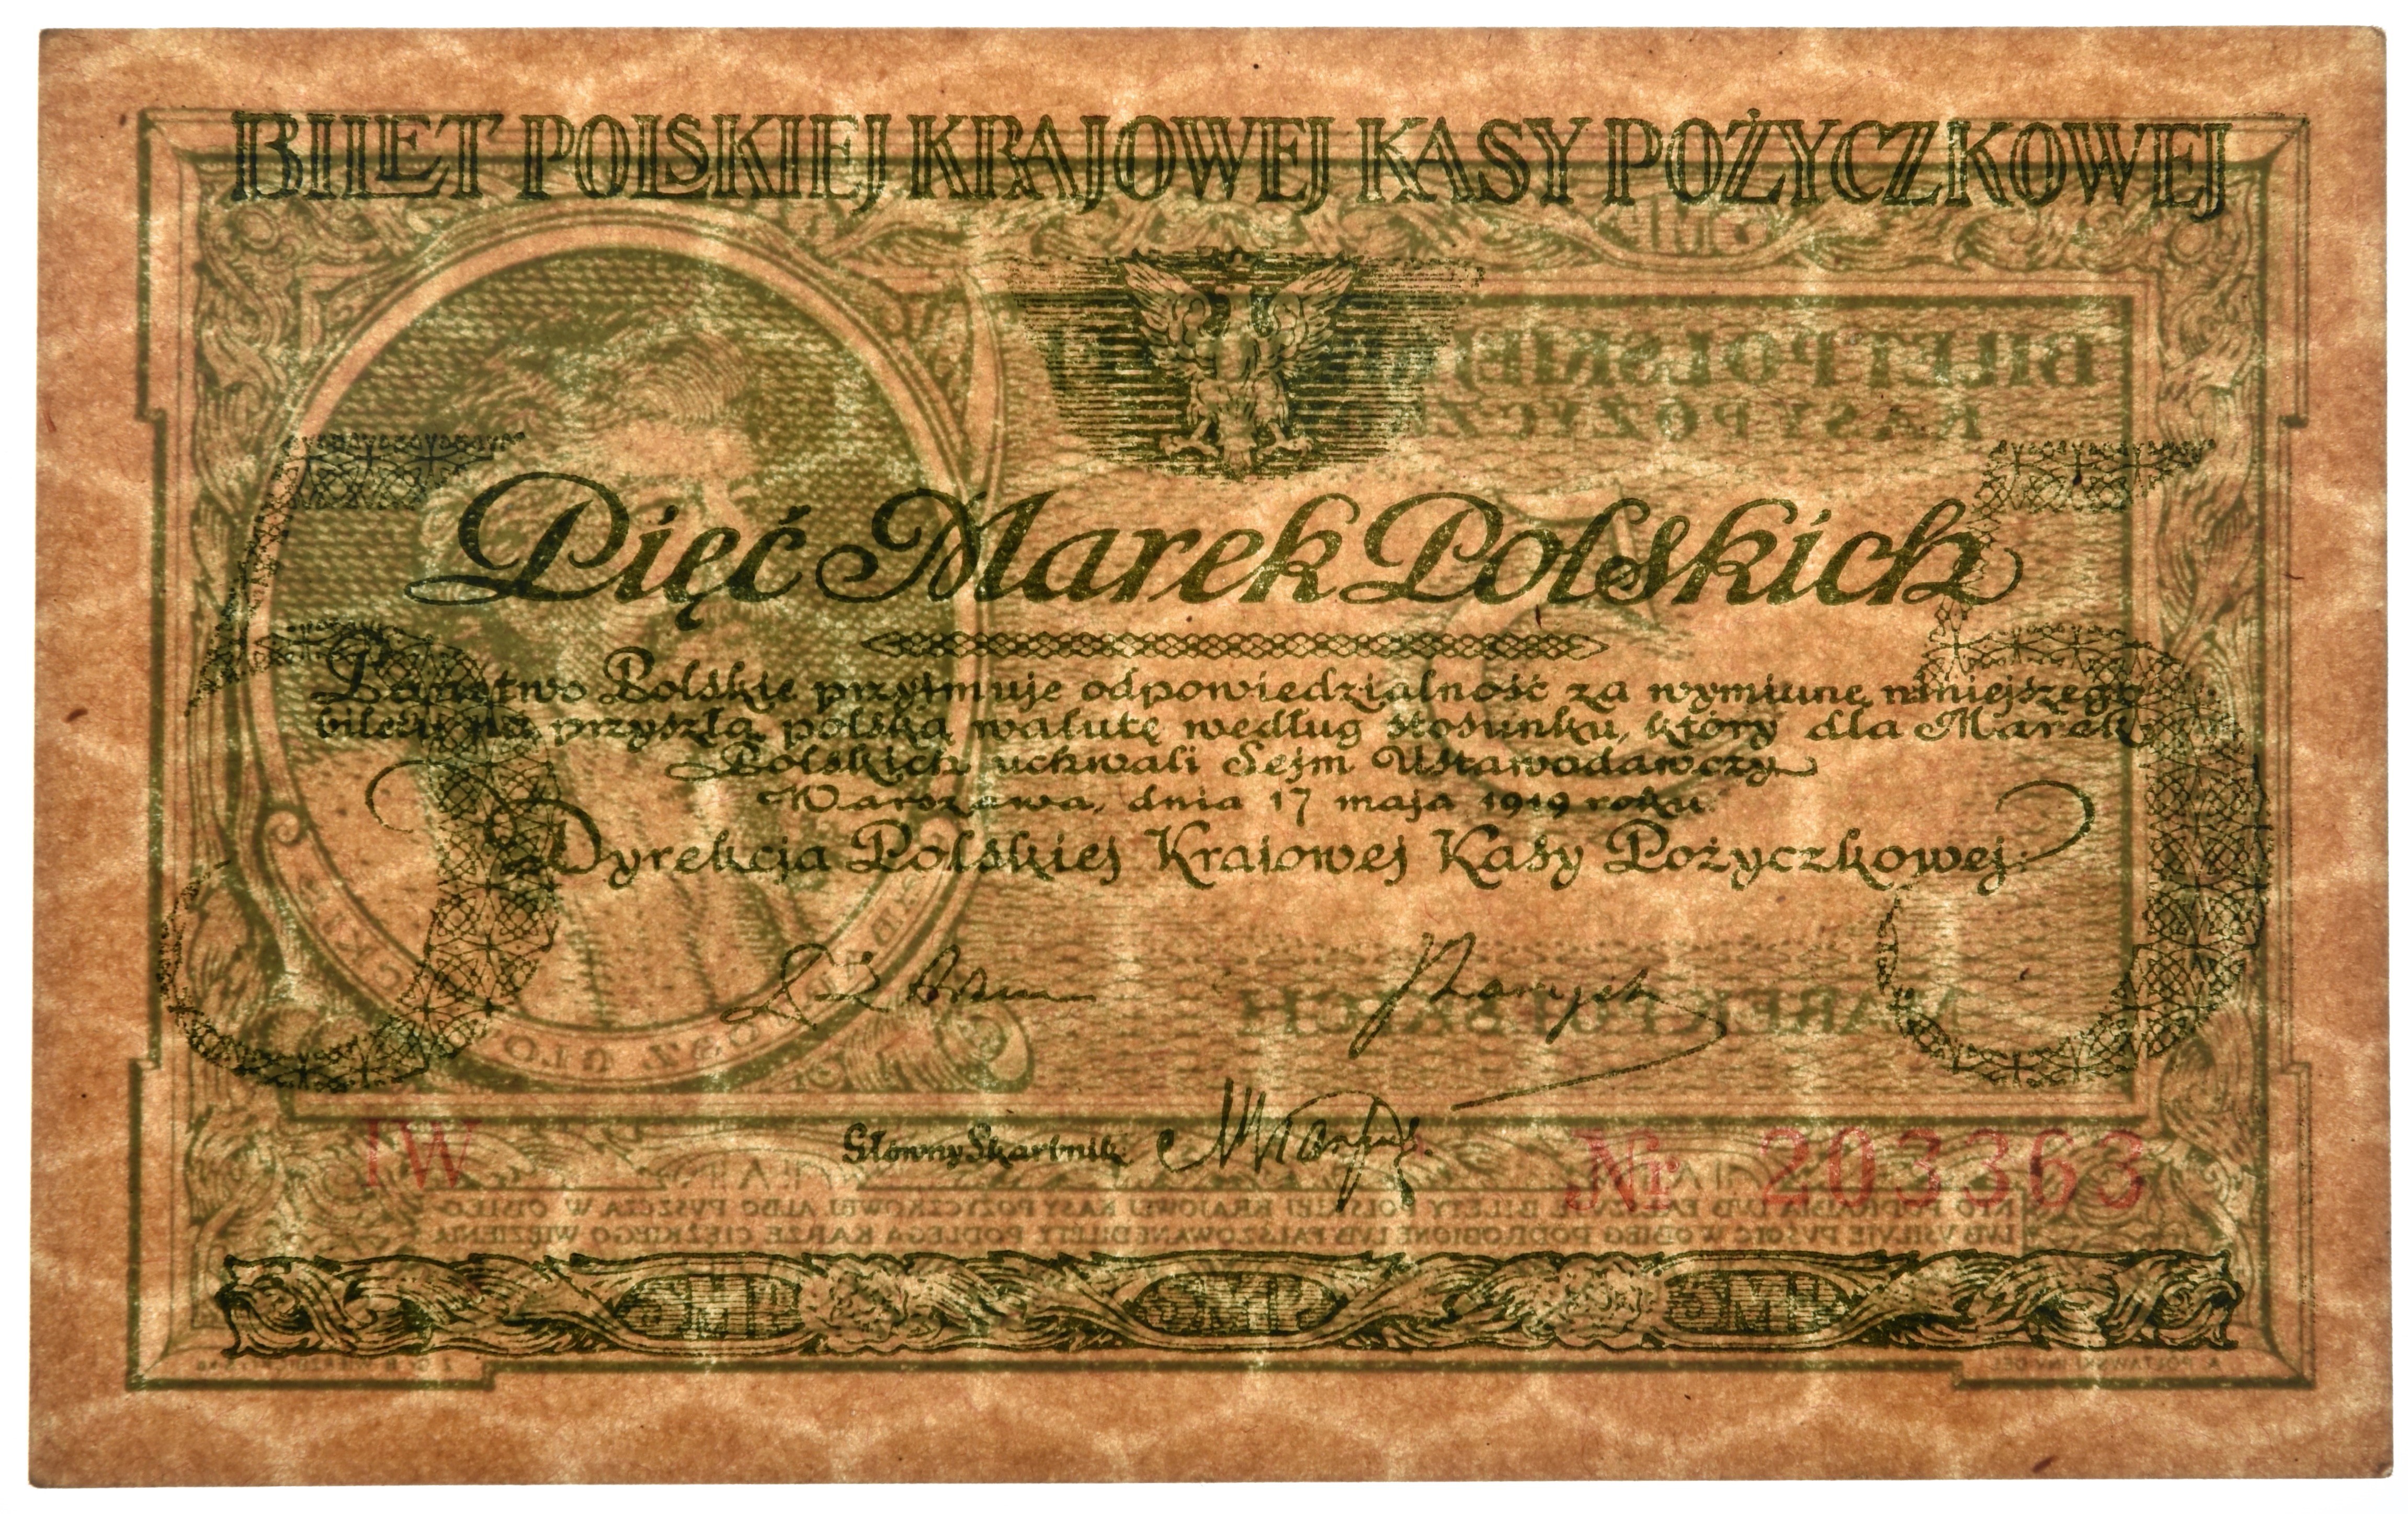 BILET POLSKIEJ KRAJOWEJ KASY POŻYCZKOWEJ
BILET POLSKIEJ
KASY POŻYCZ
5 5
Pięć Marek Polskich
Państwo Polskie przyjmuje odpowiedzialność za wymianę niniejszego
biletu na przyszłą polską walutę według stosunku, który dla Marek
Polskich uchwali Sejm Ustawodawczy
Warszawa, dnia 17 maja 1919 roku.
Dyrekcja Polskiej Krajowej Kasy Pożyczkowej:
MAREK POLSKICH
IW
Główny Skarbnik
Nr 203363
KTO PODRABIA LVB FAŁSZVJE BILETY POLSKIEJ KRAJOWEJ KASY POŻYCZKOWEJ ALBO PVSZCZA W OBIEG
LVB VSIŁVJE PVŚCIĆ W OBIEG PODROBIONE LVB FAŁSZOWANE BILETY PODLEGA KARZE CIĘŻKIEGO WIĘZIENIA
5MP 5MP 5MP
A. POŁTAWSKI INV. DEL.